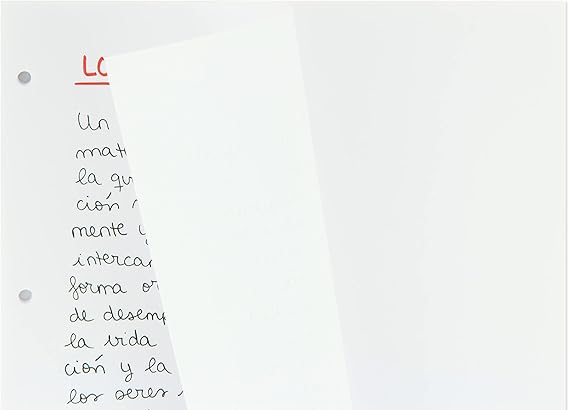 LO
Un
mat
la qu
ción
mente y
intercan
forma or
de desemp
la vida
ción y la
los seres